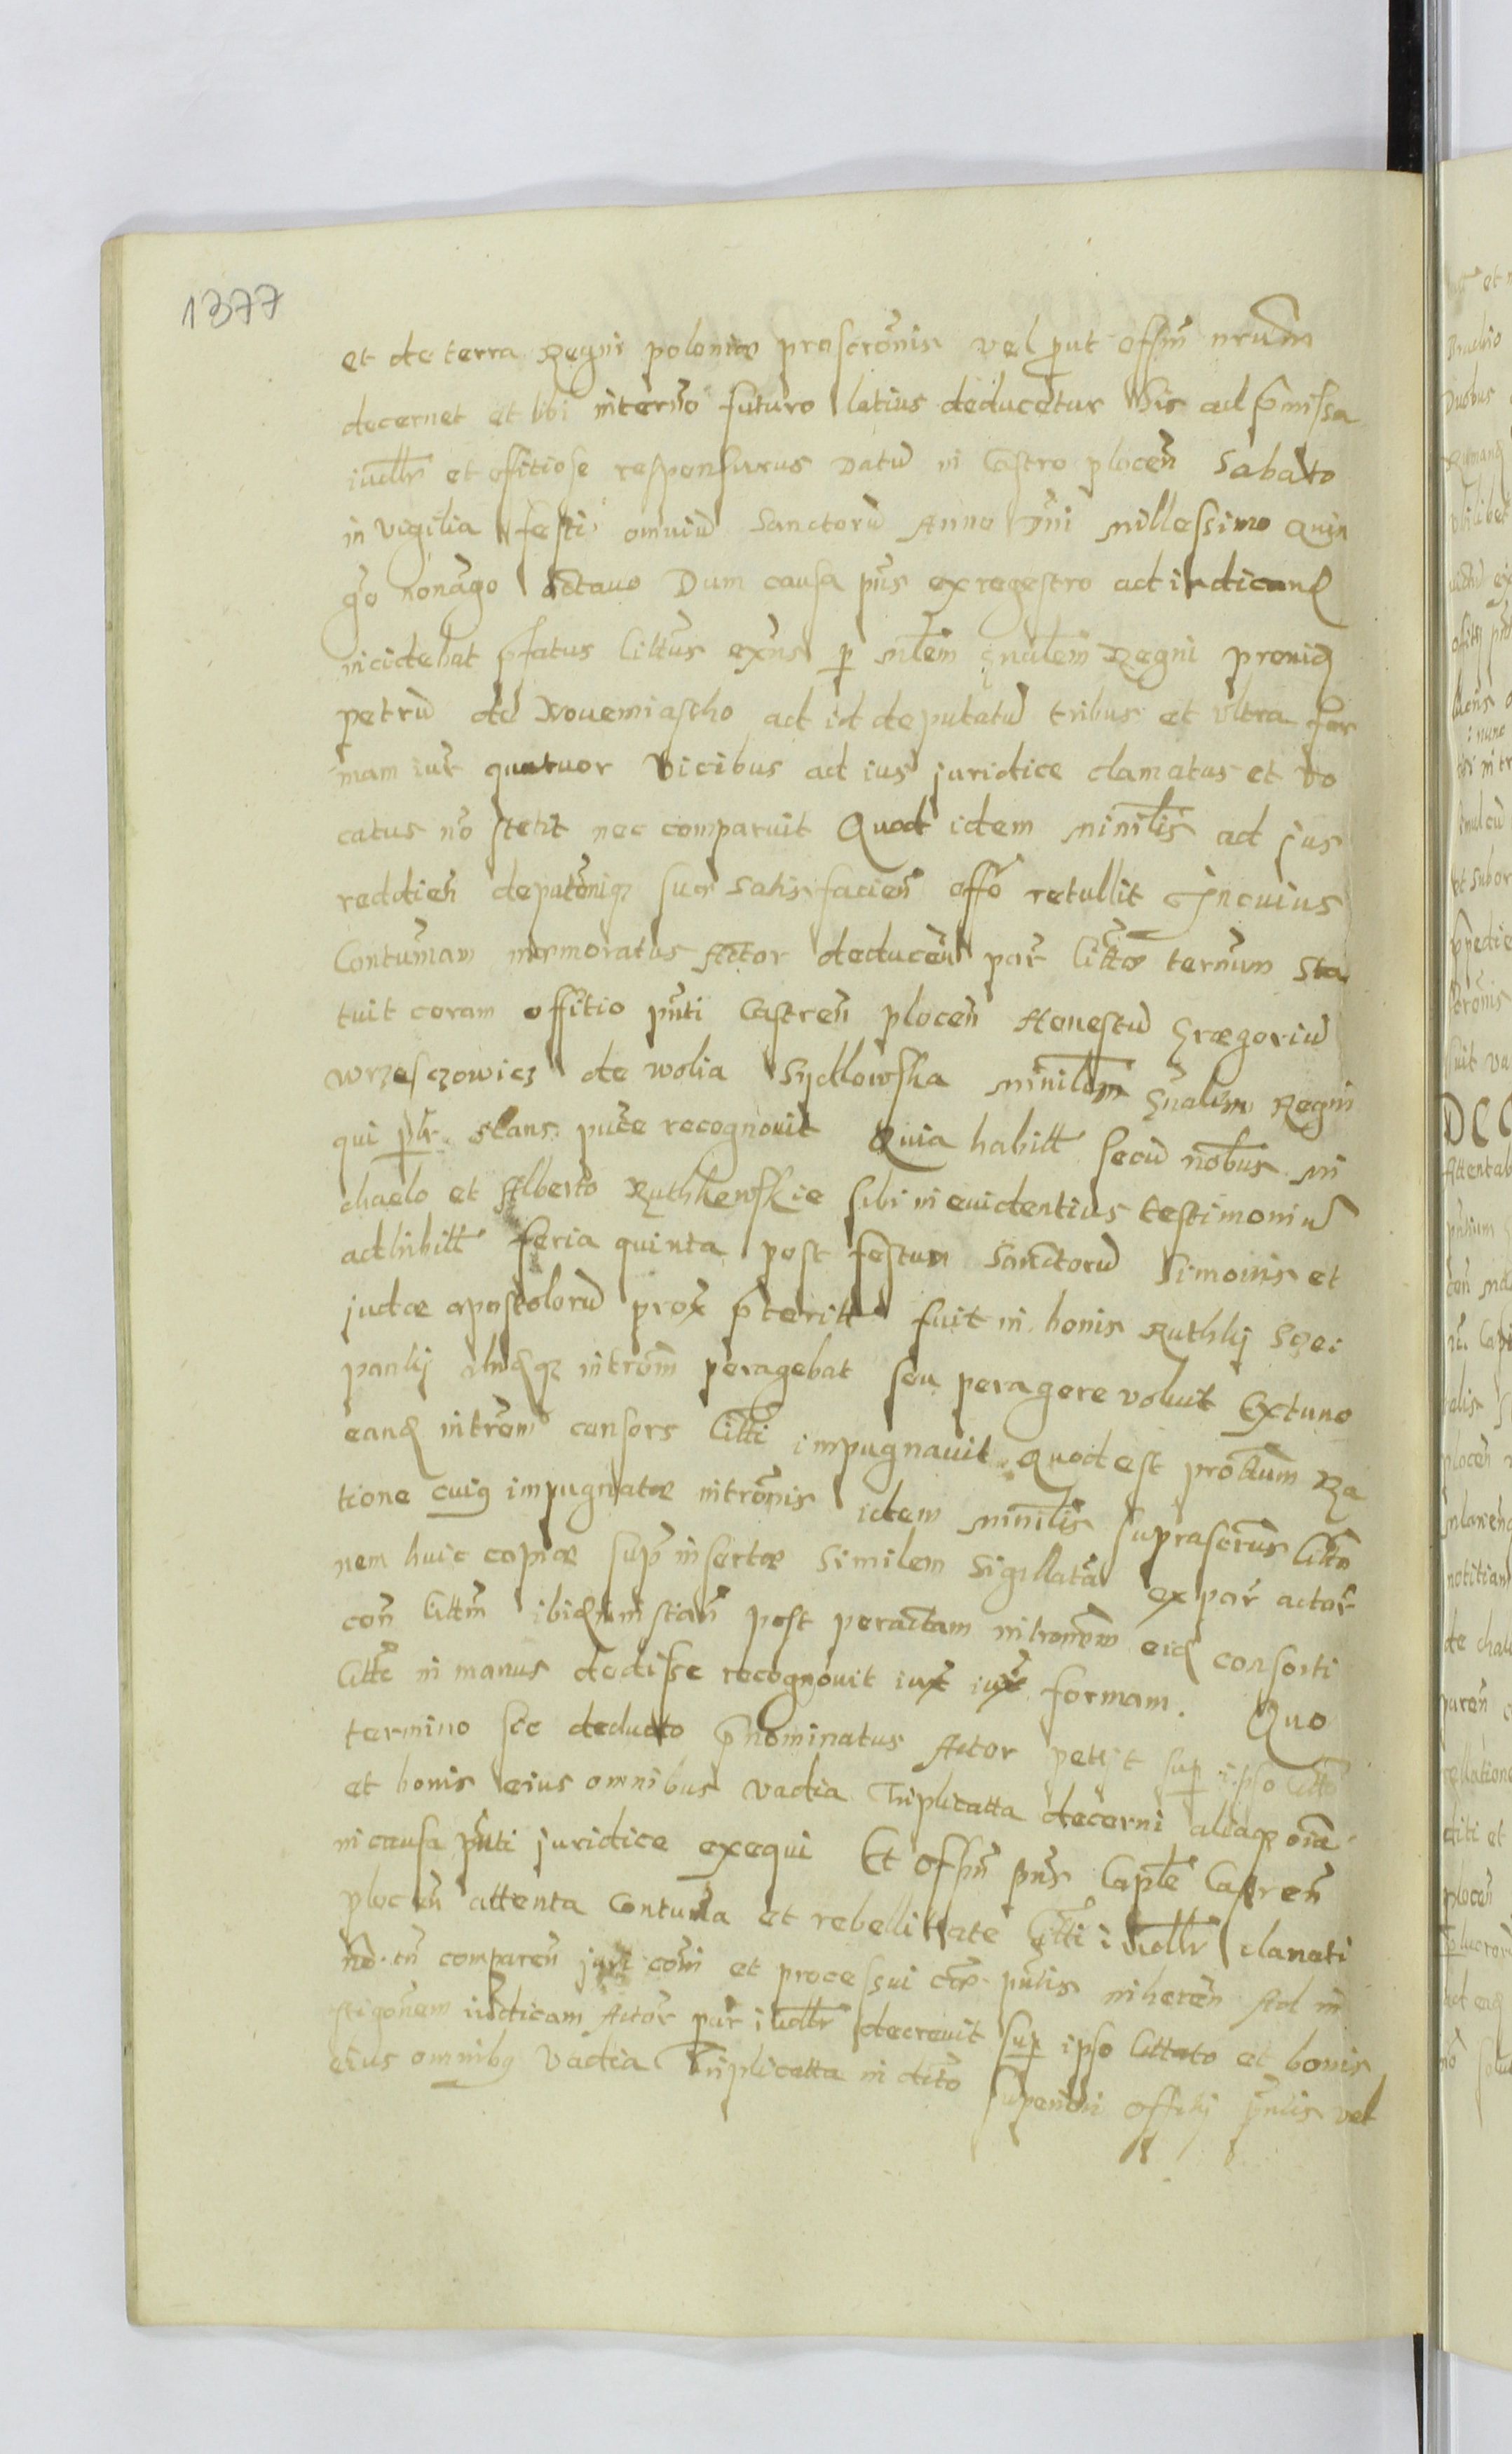 1377
et de terra Regni poloniæ proscrõnis vel put offm̃ nrum̃
decernet et tibi intermõ futuro latius deducetur his ad p̃missa
iudlr et offitiose responsurus Datũ in Castro plocen̄ Sabato
in vigilia festi omniũ Sanctorũ Anno Dn̄i Millessimo Quin
gõ nonãgo Octauo Dum causa pñs ex regestro ad iudicand
incidebat p̃fatus Cittus exñs p Mlem̃ gnalem̃ Regni prouid
petrũ de Nouemiastho ad id deputatũ tribus et Vltra for
mam iur̃ quatuor Vicibus ad ius juridice clamatus et vo
catus nõ stetit nec comparuit Quod idem Minĩlis ad jus
reddien̄ deputẽniqz suæ satisfacien̄ offõ retullit In cuius
Contumãm memoratus Actor deducen̄ par̃ Cittõ termũm Sta
tuit coram offitio pñti Castren̄ plocen̄ Honestũ Grægoriũ
wrzesczowicz de wolia Sydlowska minĩlem gñalem Regni
qui plr stans puce recognouit Quia habitt Secũ nobus Mi
chaelo et Alberto Ruthkowskie sibi in euidentius testimoniũ
adhibitt feria quinta post festum Sanctorũ Simonis et
judæ apostolorũ prox p̃teritt fuit in bonis Ruthkj Szcze
pankj ibidqz intrõm peragebat seu peragere voluit Extunc
eand intrõm consors Citti impugnauit Quod est probtum Ra
tione cuig impugnatæ intrõnis idem minĩlis suprascrus Citto
nem huic copiæ sup̃ insertæ Similem Sigillatã ex par̃ actor̃
con̄ Cittm̃ ibidm̃ in stan̄ post peractam intronem eid consorti
Citti in manus dedisse recognouit iux iur̃ formam. Quo
termino sic deducto p̃nominatus Actor petijt sup ipso Citto
et bonis eius omnibus vadia Triplicatta decerni aliaqz oĩa
in causa pñti juridice exequi Et Offm̃ pñs Caple Castren̄
plocen̄ attenta Contuma et rebellittate Citti iudlr clamati
nõ tñ comparen̄ juri comi et processui cæ pñtis inheren̄ Ad in
stigõnem iudicam Actor̃ par̃ iudlr decreuit sup ipso Cittato et bonis
eius omnibg Vadia Triplicatta indito superiori offitij pñtis vel